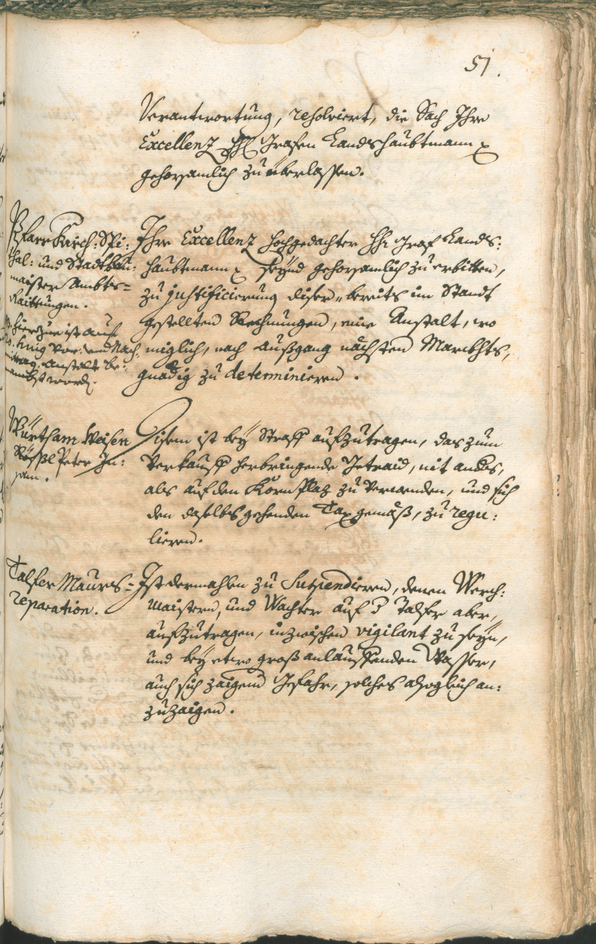 51.
Verantwortung, resolviert, die Sach Ihro
Excellenz H: Grafen Landshaubtmann
gehorsamlich zu überlassen.
Pfarr Kürch: Spi:
thal: und Stadtbau:
maister Ambts=
Raittungen.
hierzue ist auf
Anstalt be:
Ihre Excellenz hochgedachter Hr: Graf Lands:
haubtmann seynd gehorsamlich zu erbitten,
zu justificierung diser, bereits im Standt
gestellten Rechnungen, eine Anstalt, wo
miglich, nach außgang nächsten Marckhts,
gnädig zu determinieren.
Würth am Weisen
Rößl Peter
Disem ist bey Straff aufzutragen, das zum
Verkauff herbringende Getraid, nit anders,
als auf den Kornplaz zu verwenden, und sich
den daselbs gehenden Tax gemäß, zu regu:
lieren.
Talfer Maurs=
reparation.
Ist dermahlen zu suspendieren, denen Werch:
maistern, und Wachter auf d Talfer aber,
aufzutragen, inzwischen vigilant zu seyn,
und bey etwo groß anlauffenden Wasser,
auch sich zaigend Gefahr, solches alsogleich an:
zuzaigen.